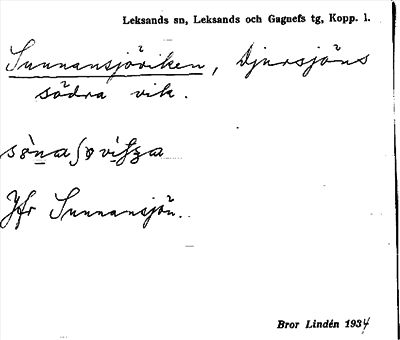 Leksands sn, Leksands och Gagnefs tg, Kopp. l.
Sunnansjöviken, Djursjöns
södra vik.
Jfr Sunnansjön.
Bror Lindén 1934